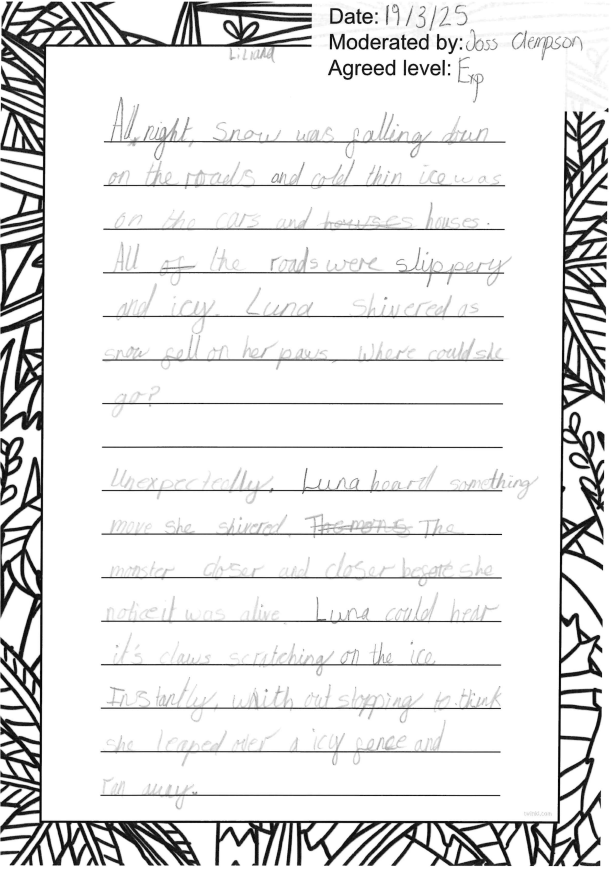 Date: 19/3/25
Moderated by: Joss Clempson
Agreed level: Exp
All night, Snow was falling down
on the roads and cold thin ice was
on the cars and howses houses.
All of the roads were slippery
and icy. Luna shivered as
snow fell on her paws. Where could she
go?
Unexpectedly, Luna heard something
move she shivered. The
monster closer and closer before she
notice it was alive. Luna could hear
it's claws scratching on the ice
Instantly, whith out stopping to think
she leaped over a icy fence and
ran away.